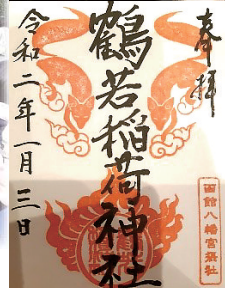 奉拝
鶴若稲荷神社
令和二年一月三日
函館八幡宮摂社